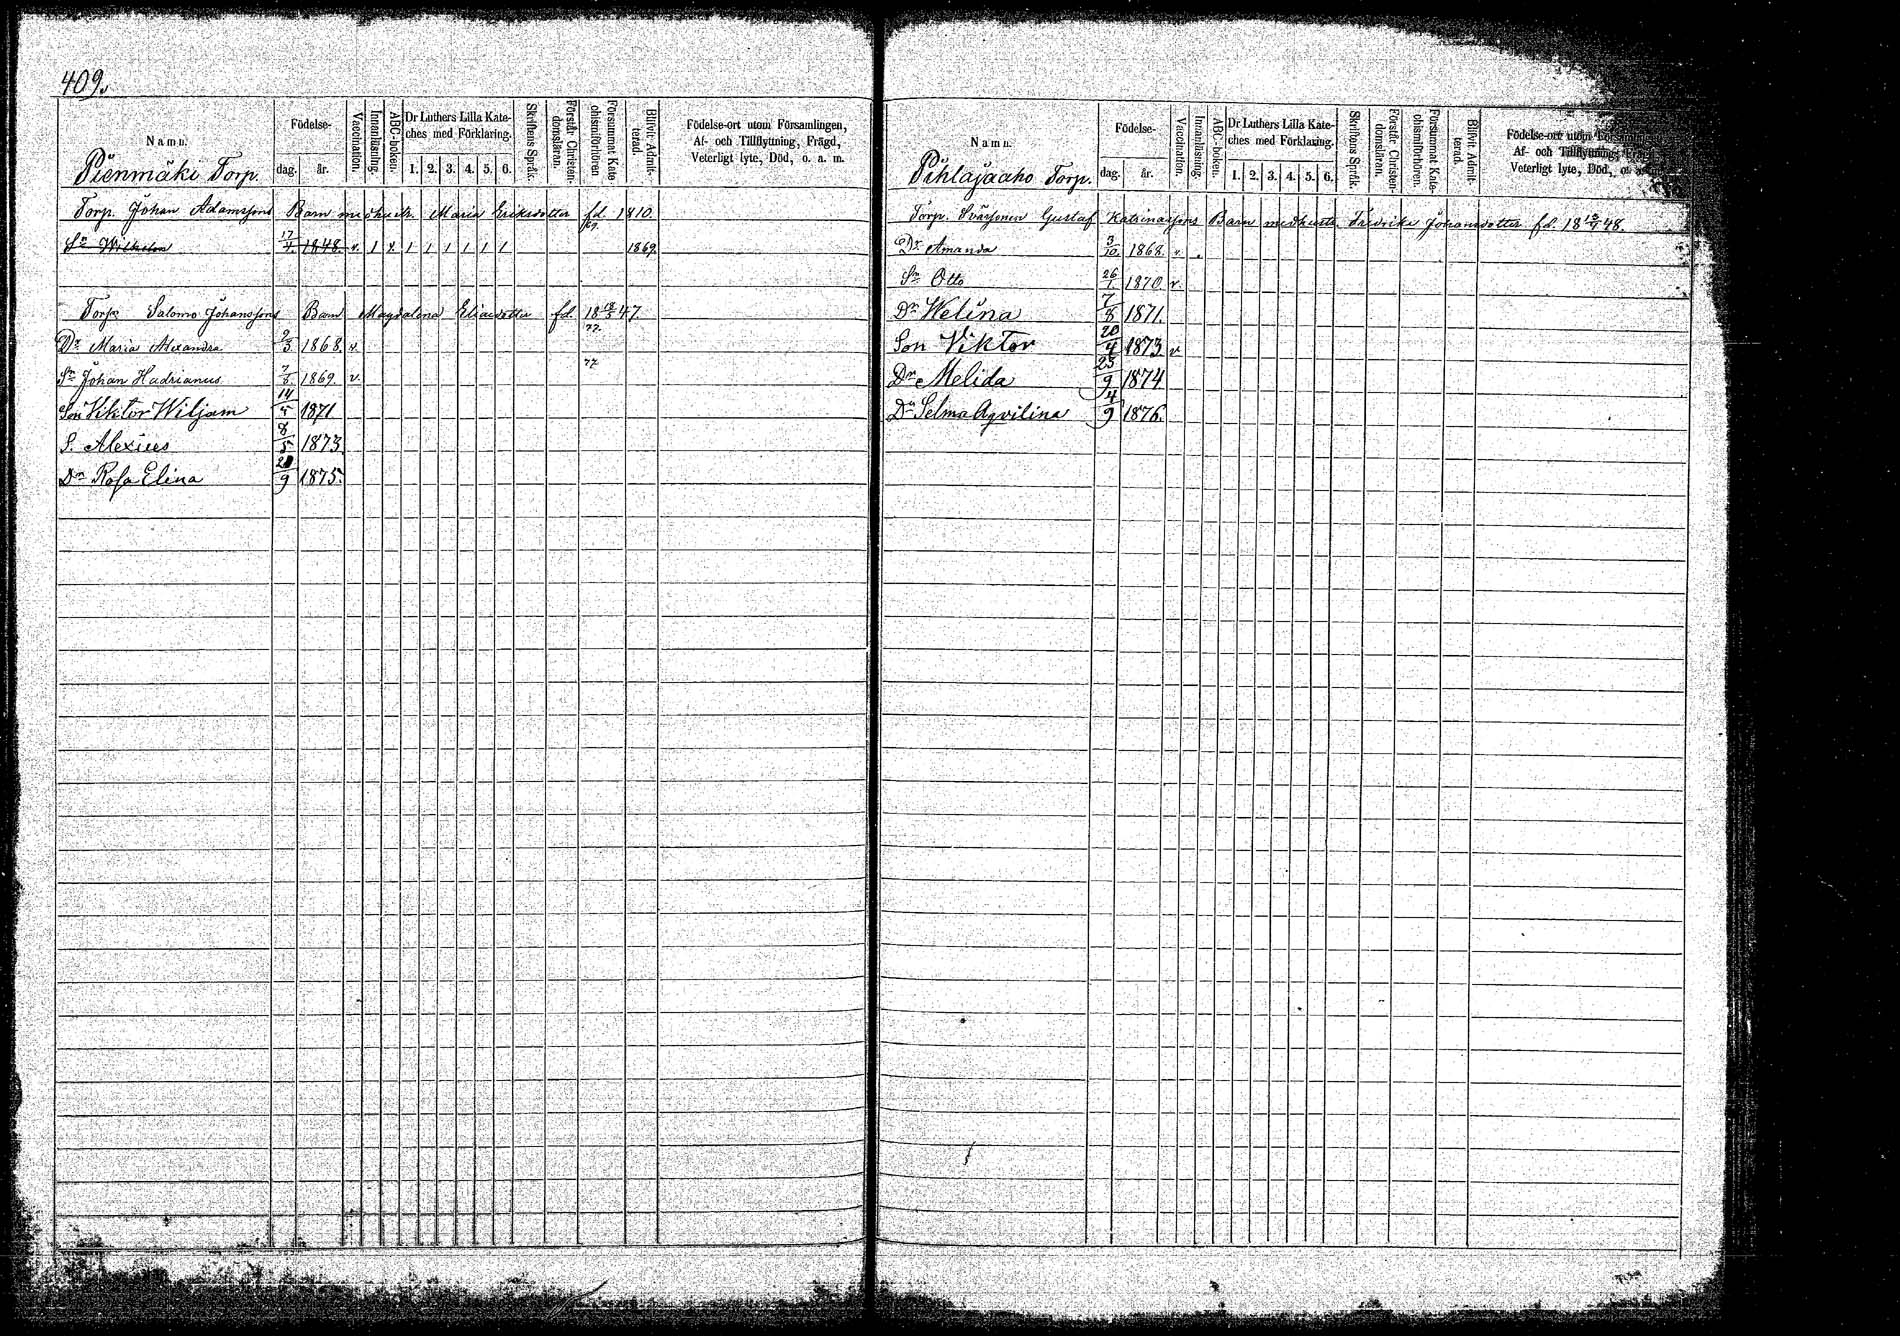 409.
Namn.
Födelse-
dag.
år.
Vaccination.
Innanläsning.
ABC-boken.
Dr Luthers Lilla Kate-
ches med Förklaring.
1. 2. 3. 4. 5. 6.
Skriftens Språk.
Förstår Christen-
domsläran.
Försummat Kate-
chismiförhören
Blifvit Admit-
terad.
Födelse-ort utom Församlingen,
Af- och Tillflyttning, Frägd,
Veterligt lyte, Död, o. a. m.
Pienmäki Torp.
Torp. Johan Adamssons Barn med hustr. Maria Eriksdotter fd. 1810.
69.
Sn Wilhelm 17/4. 1848. v. 1 v. 1 1 1 1 1 1 1869.
Torp. Salomo Johanssons Barn Magdalena Eliaedotter fd. 18 18/5 47.
77.
Dr Maria Alexandra 2/3 1868. v.
77.
Sn Johan Hadrianus 7/8. 1869. v.
Son Viktor Wiljam 14/5 1871
S. Alexius 8/5 1873
Dn Rosa Elina 20/9 1875.
Namn.
Födelse-
dag.
år.
Vaccination.
Innanläsning.
ABC-boken.
Dr Luthers Lilla Kate-
ches med Förklaring.
1. 2. 3. 4. 5. 6.
Skriftens Språk.
Förstår Christen-
domsläran.
Försummat Kate-
chismiförhören.
Blifvit Admit-
terad.
Födelse-ort utom
Af- och Tillflyttning,
Veterligt lyte, Död,
Pihlajaaho Torp.
Torp. Gustaf Katrinassons Barn med hustr. Fredrika Johansdotter fd. 18 12/4 48.
Dr Amanda 3/10. 1868. v.
Sn Otto 26/1 1870. v.
Dn Welina 7/8 1871.
Son Viktor 20/4 1873 v
Dn Melida 23/9 1874
Dn Selma Aqvilina 4/9 1876.